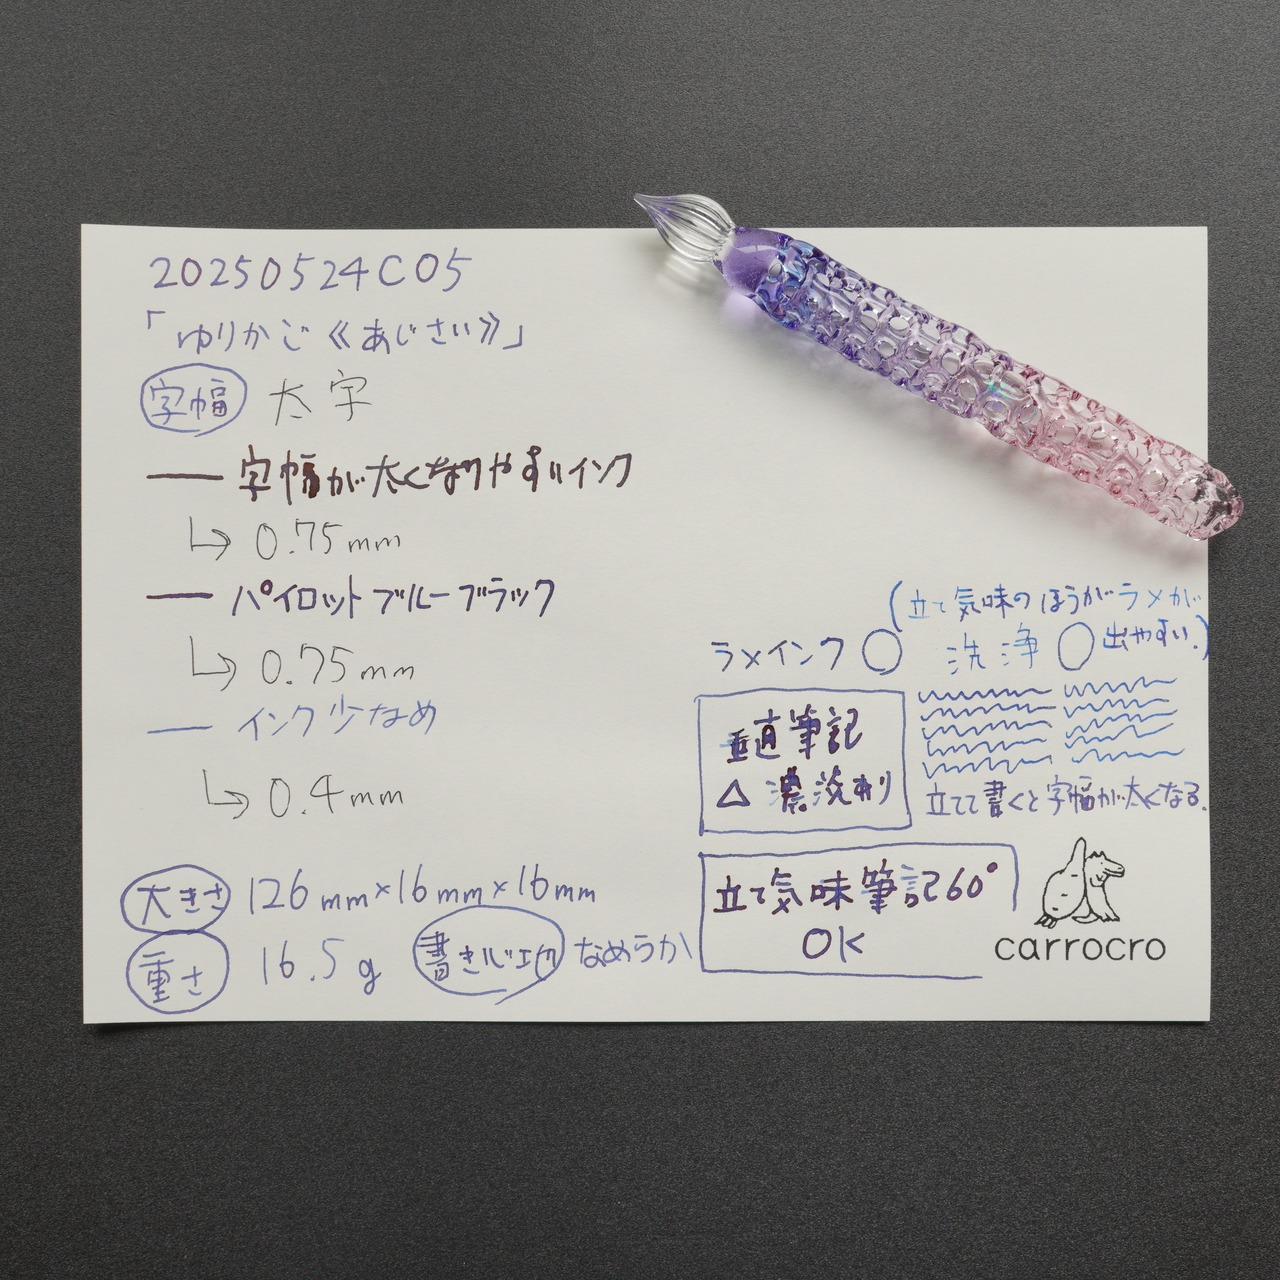 20250524C05
「ゆりかご《あじさい》」
字幅 太字
字幅が太くなりやすいインク
0.75mm
パイロットブルーブラック
0.75mm
インク少なめ
0.4mm
大きさ 126mm×16mm×16mm
重さ 16.5g 書き心地 なめらか
(立て気味のほうがラメが
出やすい.)
ラメインク ○ 洗浄 ○
垂直筆記
△ 濃淡あり
立てて書くと字幅が太くなる.
立て気味筆記60°
OK
carrocro